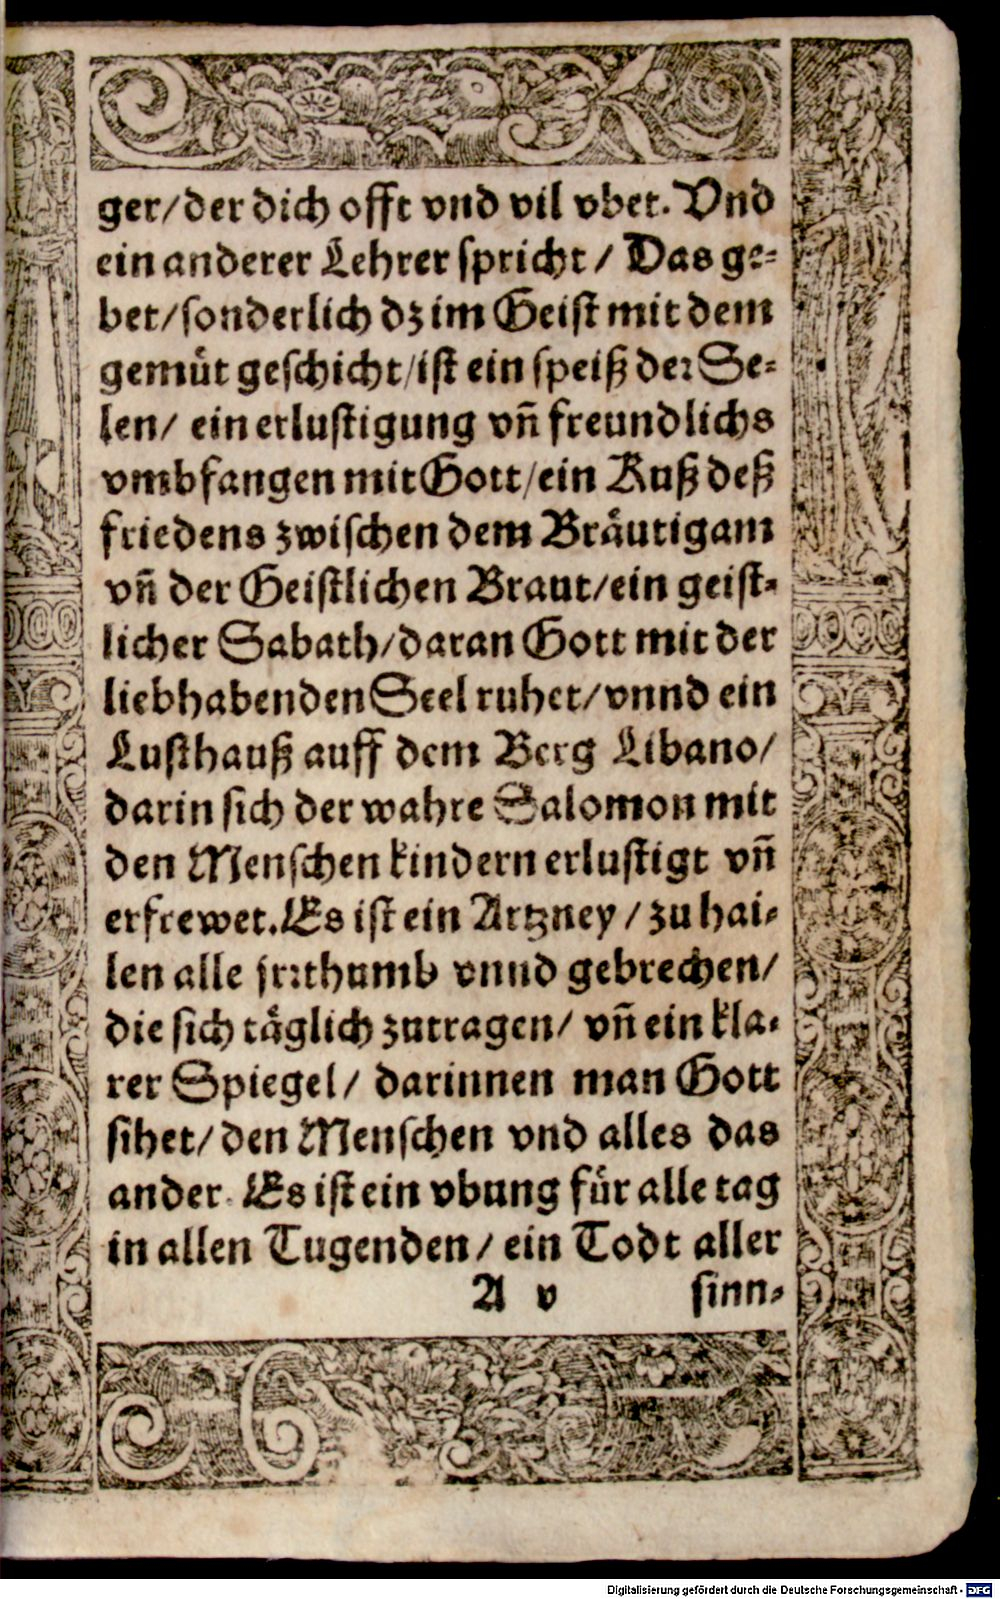 ger/der dich offt vnd vil vbet. Vnd
ein anderer Lehrer spricht / Das ge-
bet/sonderlich dz im Geist mit dem
gemüt geschicht/ist ein speiß der See-
len/ ein erlustigung vñ freundlichs
vmbfangen mit Gott/ein Kuß deß
friedens zwischen dem Bräutigam
vñ der Geistlichen Braut/ein geist-
licher Sabath/daran Gott mit der
liebhabenden Seel ruhet/vnnd ein
Lusthauß auff dem Berg Libano/
darin sich der wahre Salomon mit
den Menschen kindern erlustigt vñ
erfrewet. Es ist ein Artzney / zu hai-
len alle jrrthumb vnnd gebrechen/
die sich täglich zutragen/ vñ ein kla-
rer Spiegel/ darinnen man Gott
sihet/den Menschen vnd alles das
ander. Es ist ein vbung für alle tag
in allen Tugenden / ein Todt aller
A v sinn-
Digitalisierung gefördert durch die Deutsche Forschungsgemeinschaft - DFG